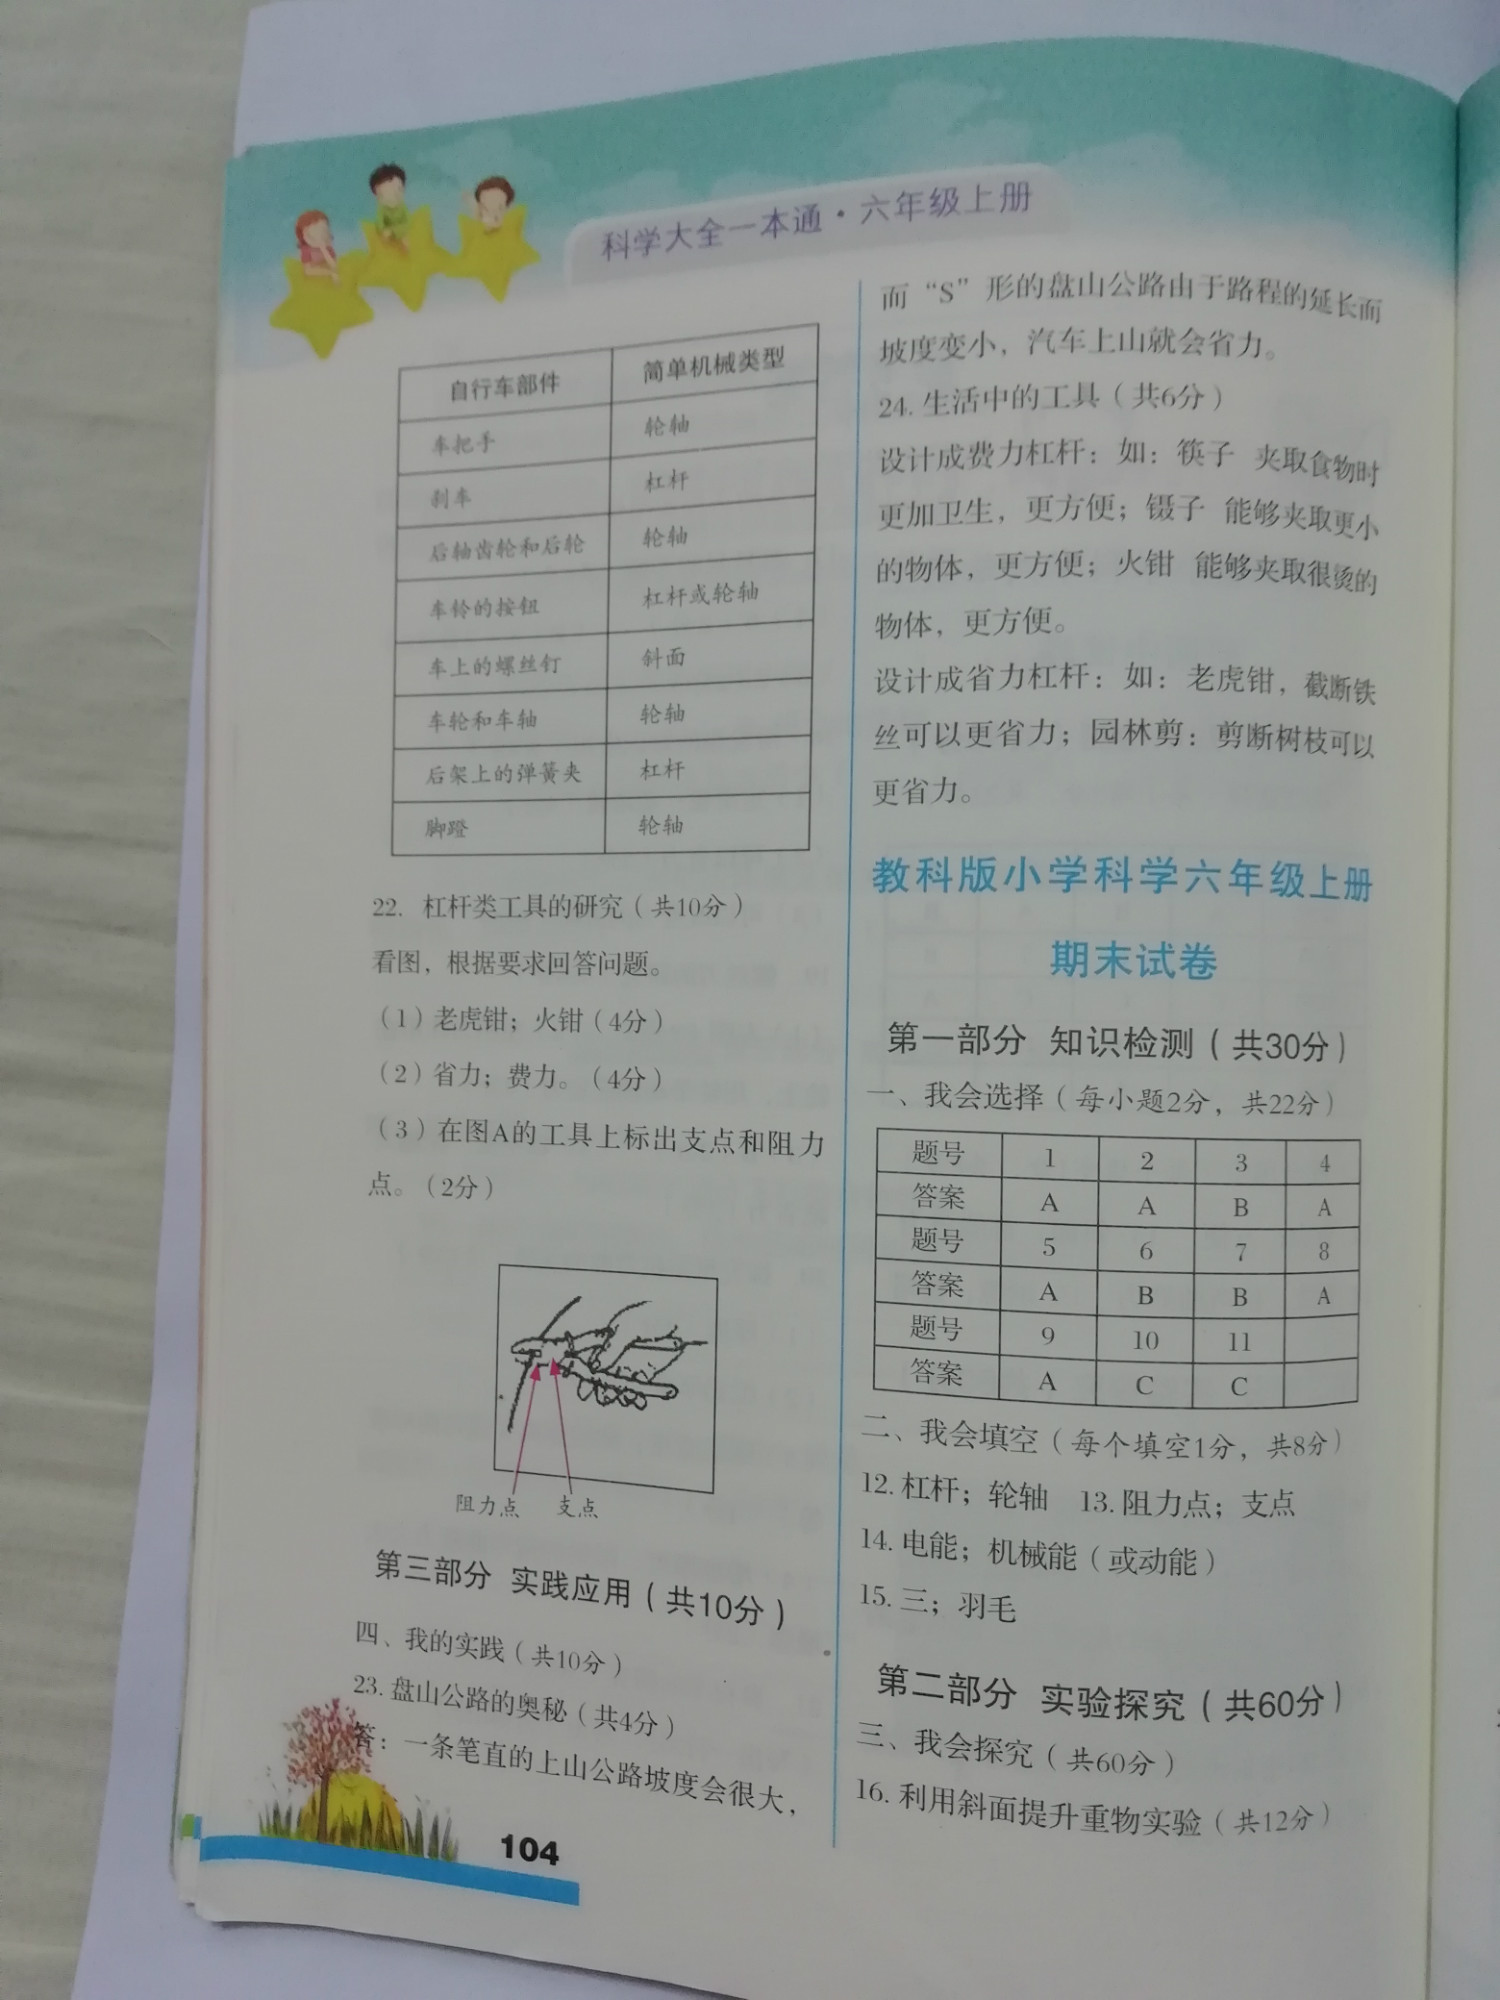 科学大全一本通·六年级上册
自行车部件 简单机械类型
车把手 轮轴
刹车 杠杆
后轴齿轮和后轮 轮轴
车铃的按钮 杠杆或轮轴
车上的螺丝钉 斜面
车轮和车轴 轮轴
后架上的弹簧夹 杠杆
脚蹬 轮轴
22. 杠杆类工具的研究（共10分）
看图，根据要求回答问题。
（1）老虎钳；火钳（4分）
（2）省力；费力。（4分）
（3）在图A的工具上标出支点和阻力
点。（2分）
阻力点 支点
第三部分 实践应用（共10分）
四、我的实践（共10分）
23. 盘山公路的奥秘（共4分）
答：一条笔直的上山公路坡度会很大，
104
而“S”形的盘山公路由于路程的延长而
坡度变小，汽车上山就会省力。
24. 生活中的工具（共6分）
设计成费力杠杆：如：筷子 夹取食物时
更加卫生，更方便；镊子 能够夹取更小
的物体，更方便；火钳 能够夹取很烫的
物体，更方便。
设计成省力杠杆：如：老虎钳，截断铁
丝可以更省力；园林剪：剪断树枝可以
更省力。
教科版小学科学六年级上册
期末试卷
第一部分 知识检测（共30分）
一、我会选择（每小题2分，共22分）
题号 1 2 3 4
答案 A A B A
题号 5 6 7 8
答案 A B B A
题号 9 10 11
答案 A C C
二、我会填空（每个填空1分，共8分）
12. 杠杆；轮轴 13. 阻力点；支点
14. 电能；机械能（或动能）
15. 三；羽毛
第二部分 实验探究（共60分）
三、我会探究（共60分）
16. 利用斜面提升重物实验（共12分）